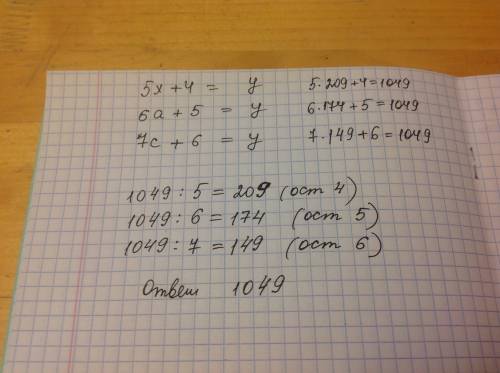 5x + 4 = y 5·209+4=1049
6a + 5 = y 6·174+5=1049
7c + 6 = y 7·149+6=1049
1049 : 5 = 209 (ост 4)
1049 : 6 = 174 (ост 5)
1049 : 7 = 149 (ост 6)
Ответ 1049